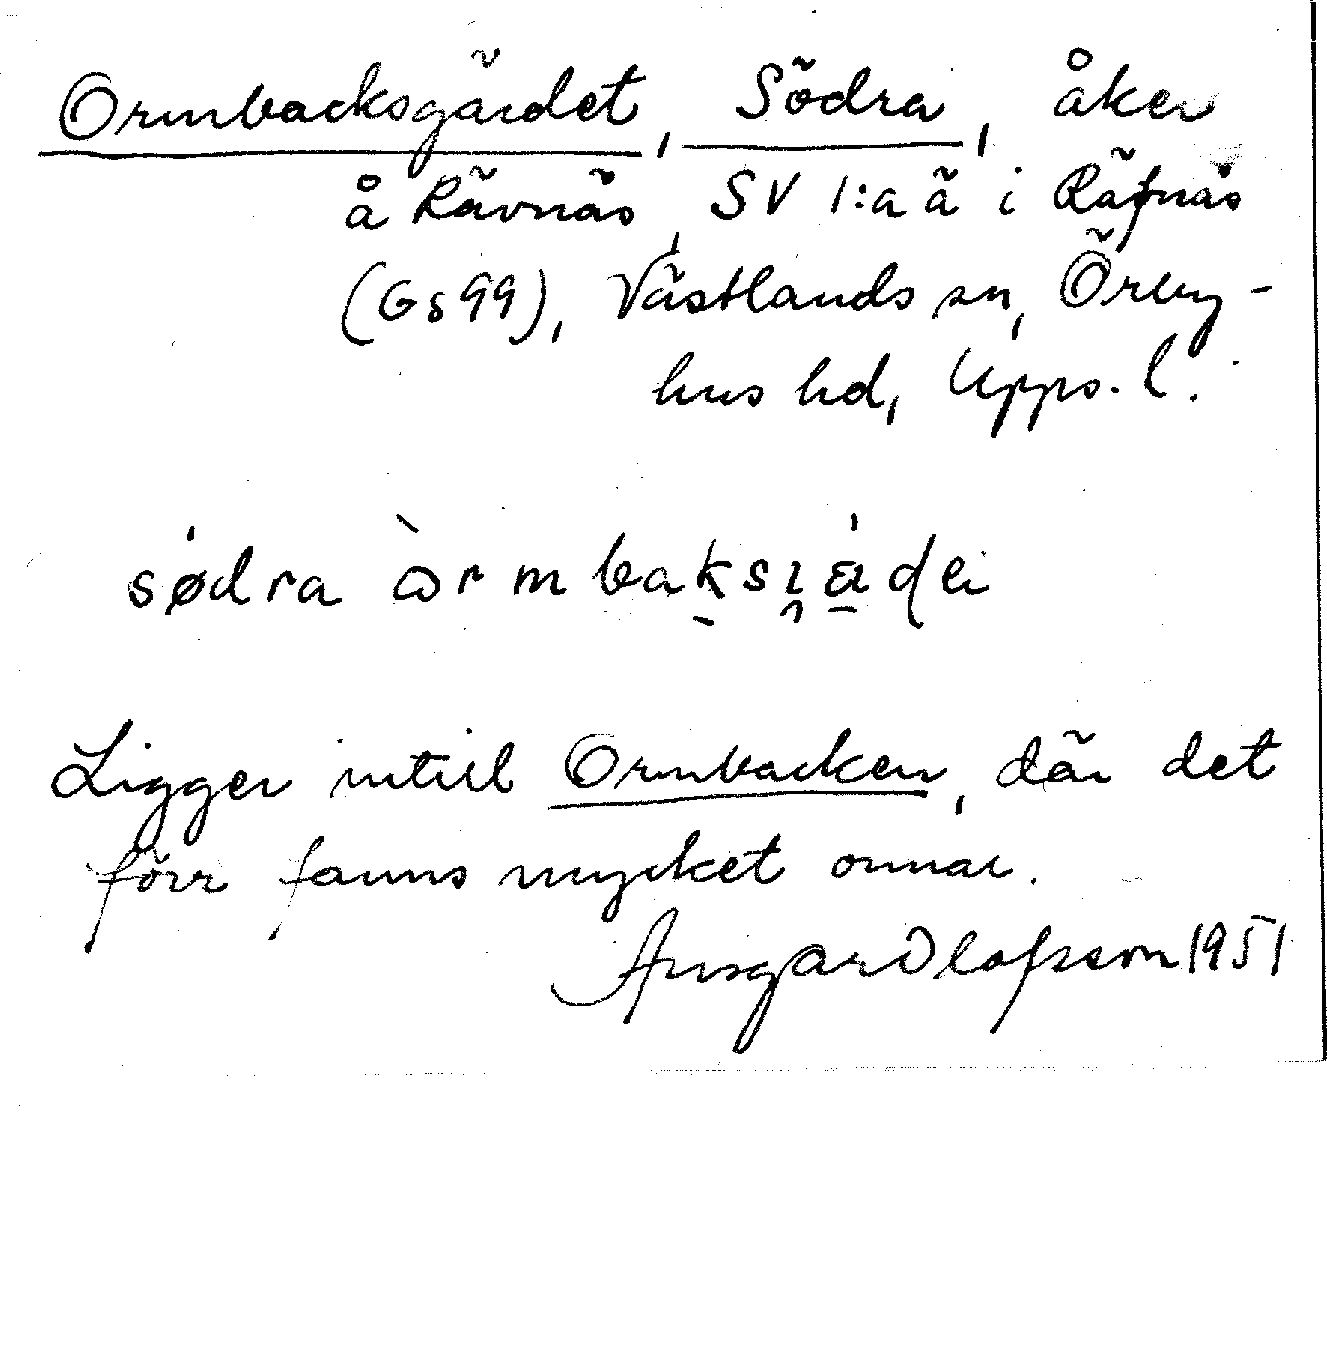 Ormbacksgärdet, Södra, åker
å Rävnäs, SV 1:a ä i Räfnäs
(Gs99), Västlands sn, Örby-
hus hd, Upps. l.
sødra
Ligger intill Ormbacken, där det
förr fanns mycket ormar.
Ansgar Olofsson 1951